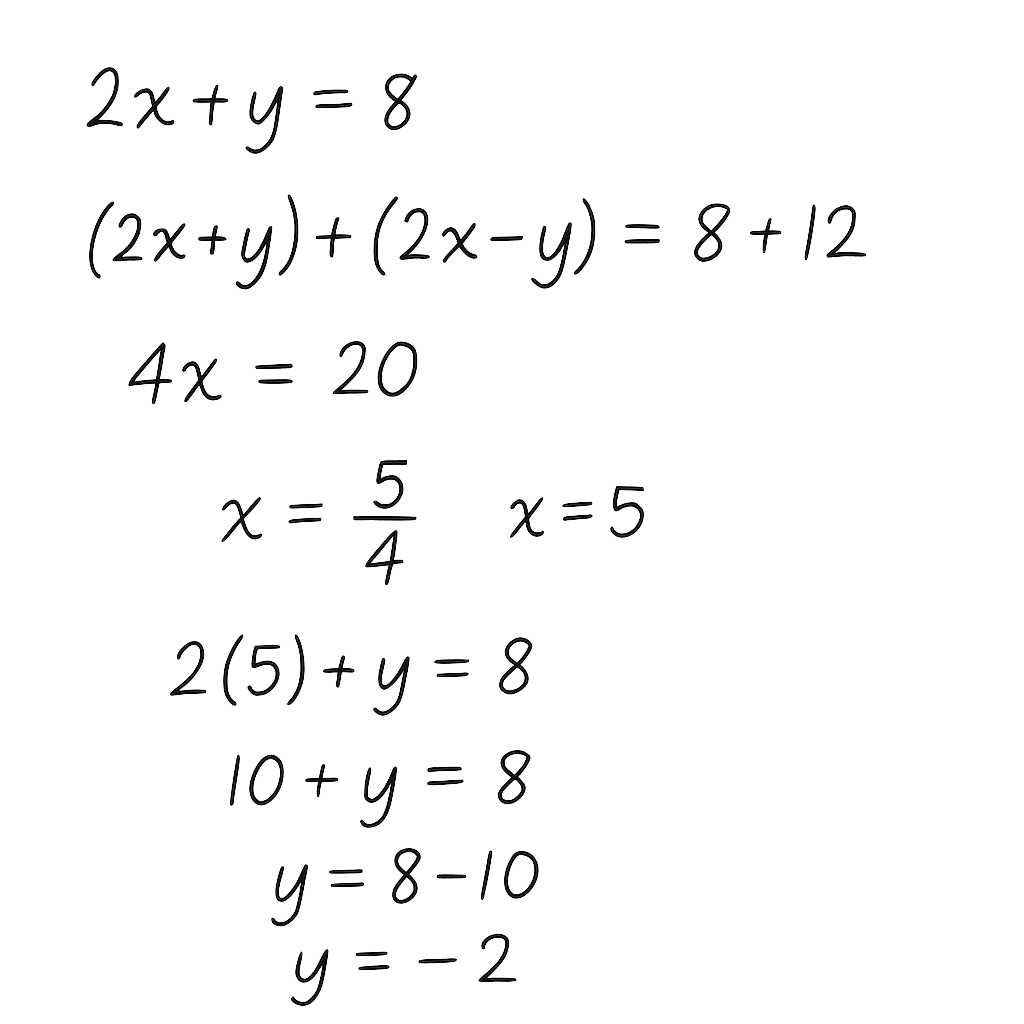 2x + y = 8
(2x+y) + (2x-y) = 8 + 12
4x = 20
x = 5/4 x=5
2(5) + y = 8
10 + y = 8
y = 8-10
y = -2